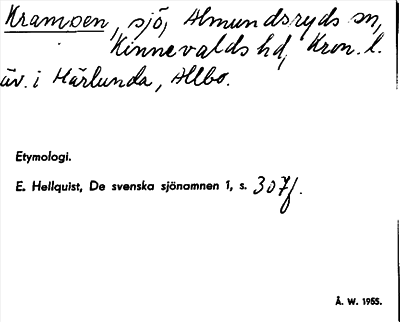 Kramsen, sjö, Almundsryds sn,
Kinnevalds hd, Kron. l.
äv. i Härlunda, Allbo.
Etymologi.
E. Hellquist, De svenska sjönamnen 1, s. 307f.
Å. W. 1955.